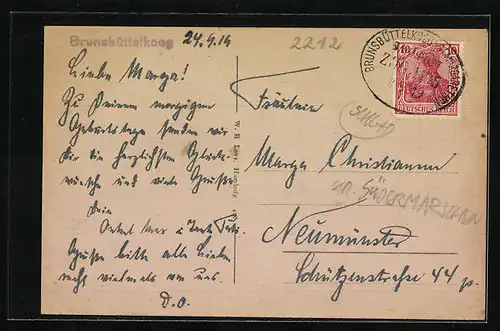 Brunsbüttelkoog
24.9.16
2212
BRUNSBÜTTELKOOG
10 10
DEUTSCHES REICH
Liebe Marga!
Zu Deinem morgigen
Geburtstage senden wir
Dir die herzlichsten Glück-
wünsche und viele Grüße
Dein
Onkel u Tante
Grüße bitte alle Lieben
recht vielmals von uns.
D.O.
Fräulein
Marga Christiansen
SÜDERMARSCHEN
Neumünster
Schützenstraße 44 p.